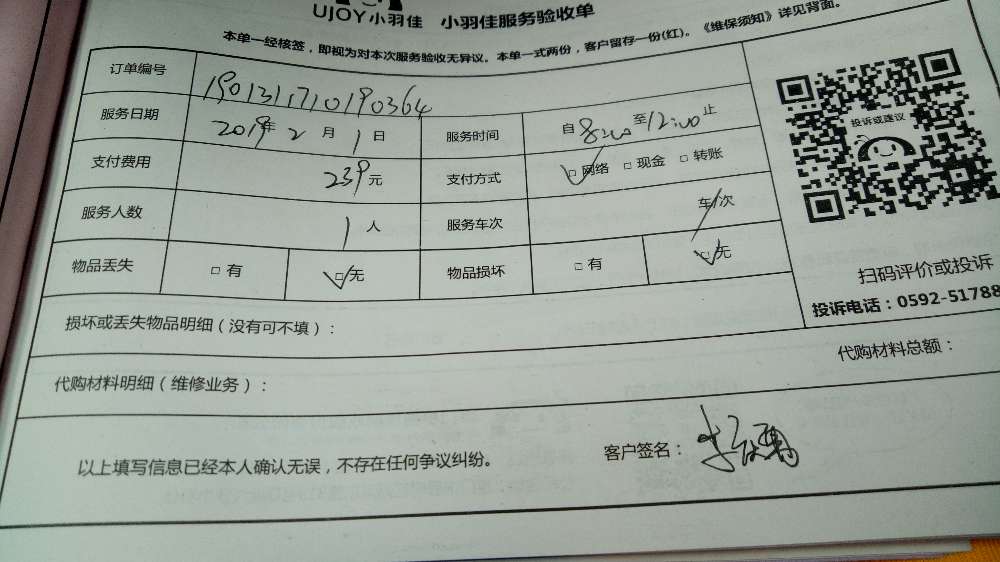 UJOY小羽佳 小羽佳服务验收单
本单一经核签，即视为对本次服务验收无异议。本单一式两份，客户留存一份(红)。《维保须知》详见背面。
订单编号 1901311710190364
服务日期 2019年 2 月 1 日 服务时间 自 8:00 至 12:00 止
支付费用 239元 支付方式 □网络 □现金 □转账
服务人数 1 人 服务车次 车/次
物品丢失 □有 □无 物品损坏 □有 □无
投诉或建议
扫码评价或投诉
投诉电话：0592-51788
损坏或丢失物品明细（没有可不填）：
代购材料明细（维修业务）： 代购材料总额：
以上填写信息已经本人确认无误，不存在任何争议纠纷。 客户签名：